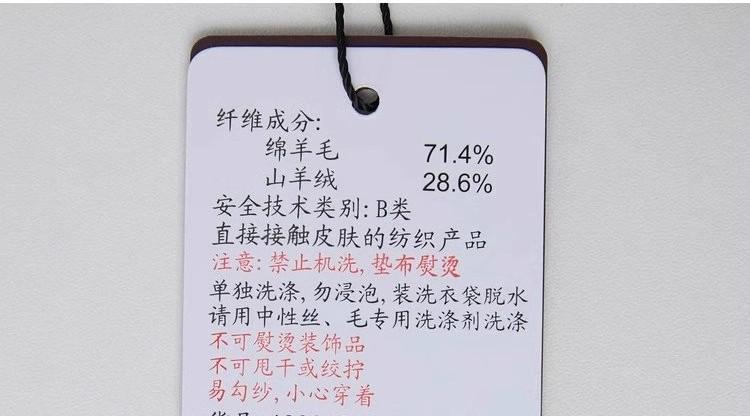 纤维成分:
绵羊毛 71.4%
山羊绒 28.6%
安全技术类别: B类
直接接触皮肤的纺织产品
注意: 禁止机洗, 垫布熨烫
单独洗涤, 勿浸泡, 装洗衣袋脱水
请用中性丝、毛专用洗涤剂洗涤
不可熨烫装饰品
不可甩干或绞拧
易勾纱, 小心穿着